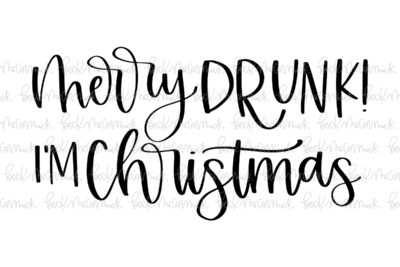 merry DRUNK!
I'M Christmas